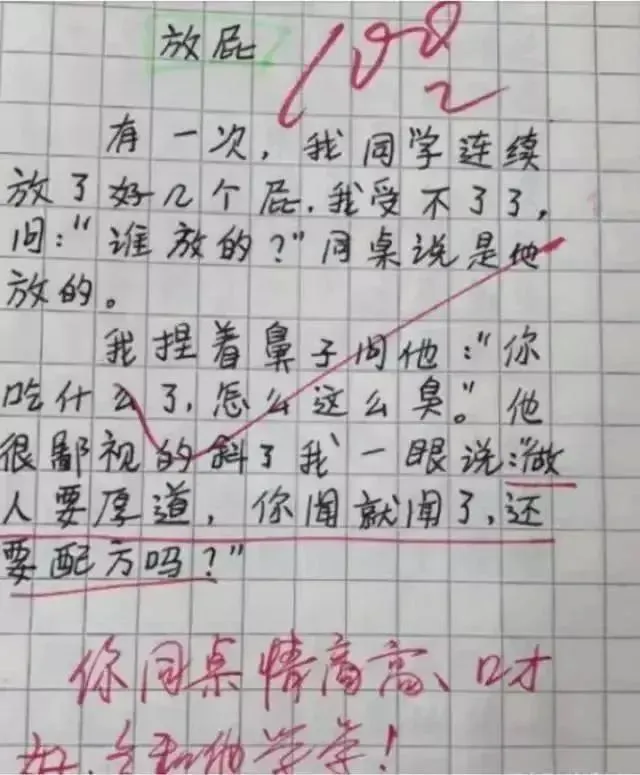 放屁
100
有一次，我同学连续
放了好几个屁.我受不了了，
问:“谁放的?”同桌说是他
放的。
我捏着鼻子问他:“你
吃什么了,怎么这么臭。”他
很鄙视的斜了我一眼说:“做
人要厚道，你闻就闻了,还
要配方吗?”
你同桌情商高、口才
好.去和他学学!